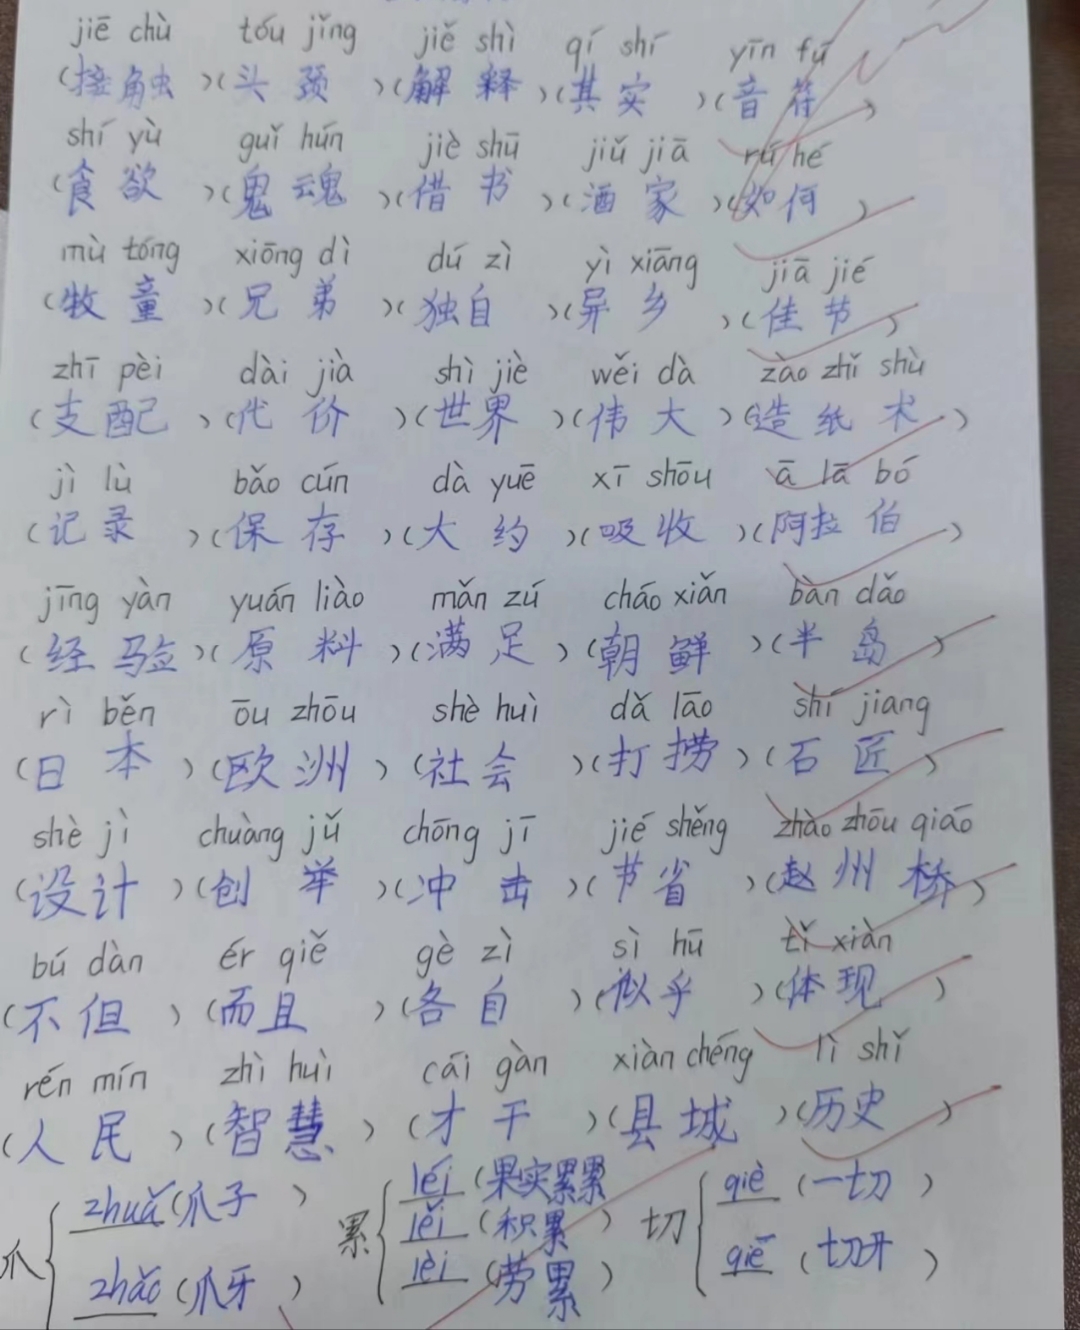 jiē chù tóu jǐng jiě shì qí shí yīn fú
(接触)(头颈)(解释)(其实)(音符)
shí yù guǐ hún jiè shū jiǔ jiā rú hé
(食欲)(鬼魂)(借书)(酒家)(如何)
mù tóng xiōng dì dú zì yì xiāng jiā jié
(牧童)(兄弟)(独自)(异乡)(佳节)
zhī pèi dài jià shì jiè wěi dà zào zhǐ shù
(支配)(代价)(世界)(伟大)(造纸术)
jì lù bǎo cún dà yuē xī shōu ā lā bó
(记录)(保存)(大约)(吸收)(阿拉伯)
jīng yàn yuán liào mǎn zú cháo xiǎn bàn dǎo
(经验)(原料)(满足)(朝鲜)(半岛)
rì běn ōu zhōu shè huì dǎ lāo shí jiang
(日本)(欧洲)(社会)(打捞)(石匠)
shè jì chuàng jǔ chōng jī jié shěng zhào zhōu qiáo
(设计)(创举)(冲击)(节省)(赵州桥)
bú dàn ér qiě gè zì sì hū tǐ xiàn
(不但)(而且)(各自)(似乎)(体现)
rén mín zhì huì cái gàn xiàn chéng lì shǐ
(人民)(智慧)(才干)(县城)(历史)
爪 zhuǎ (爪子) 累 léi (果实累累 切 qiè (一切)
lěi (积累)
zhǎo (爪牙) lèi (劳累) qiē (切开)